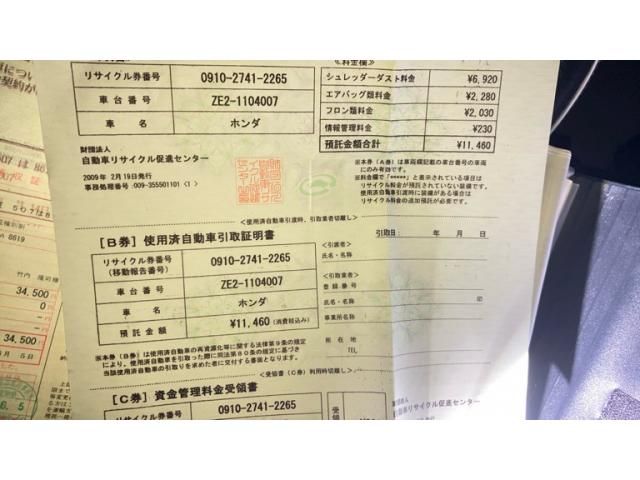 リサイクル券番号 0910-2741-2265
車台番号 ZE2-1104007
車名 ホンダ
財団法人
自動車リサイクル促進センター
2009年 2月19日発行
事務処理番号:009-355501101〈1〉
≪料金欄≫
シュレッダーダスト料金 ¥6,920
エアバッグ類料金 ¥2,280
フロン類料金 ¥2,030
情報管理料金 ¥230
預託金額合計 ¥11,460
※本券(A券)は車両欄記載の車台番号の車両
にのみ有効です。
※料金欄で「*****」と表示されている場合は
リサイクル料金が預託されていない装備です。
使用済自動車引渡時に装備がある場合は
リサイクル料金の追加預託が必要です。
<使用済自動車引渡時、引取業者切離し>
[B券] 使用済自動車引取証明書
リサイクル券番号
(移動報告番号) 0910-2741-2265
車台番号 ZE2-1104007
車名 ホンダ
預託金額 ¥11,460 (消費税込み)
引取日: 年 月 日
<引渡者>
氏名・名称
<引取業者>
登録番号
氏名・名称 印
事業所名称
所在地
TEL
※本券(B券)は使用済自動車の再資源化等に関する法律第9条の規定
により、使用済自動車を引取った際に同法第80条の規定に基づき
当該使用済自動車の引取りを求めた者に交付する書面となります。
<受領書(C券)利用時切離し>
[C券] 資金管理料金受領書
リサイクル券番号 0910-2741-2265
受領
自動車リサイクル促進センター
34,500
0
34,500